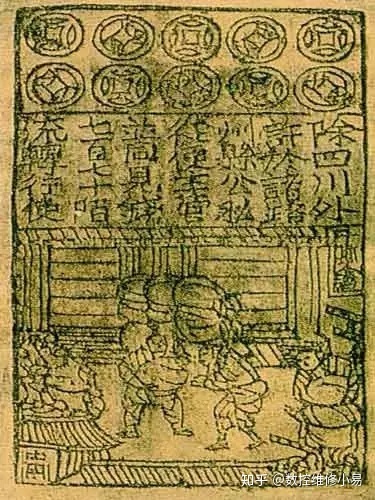 除四川外
許於諸路
州縣公私
從便主管
並同見錢
七百七十陌
流轉行使
知乎 @数控维修小易